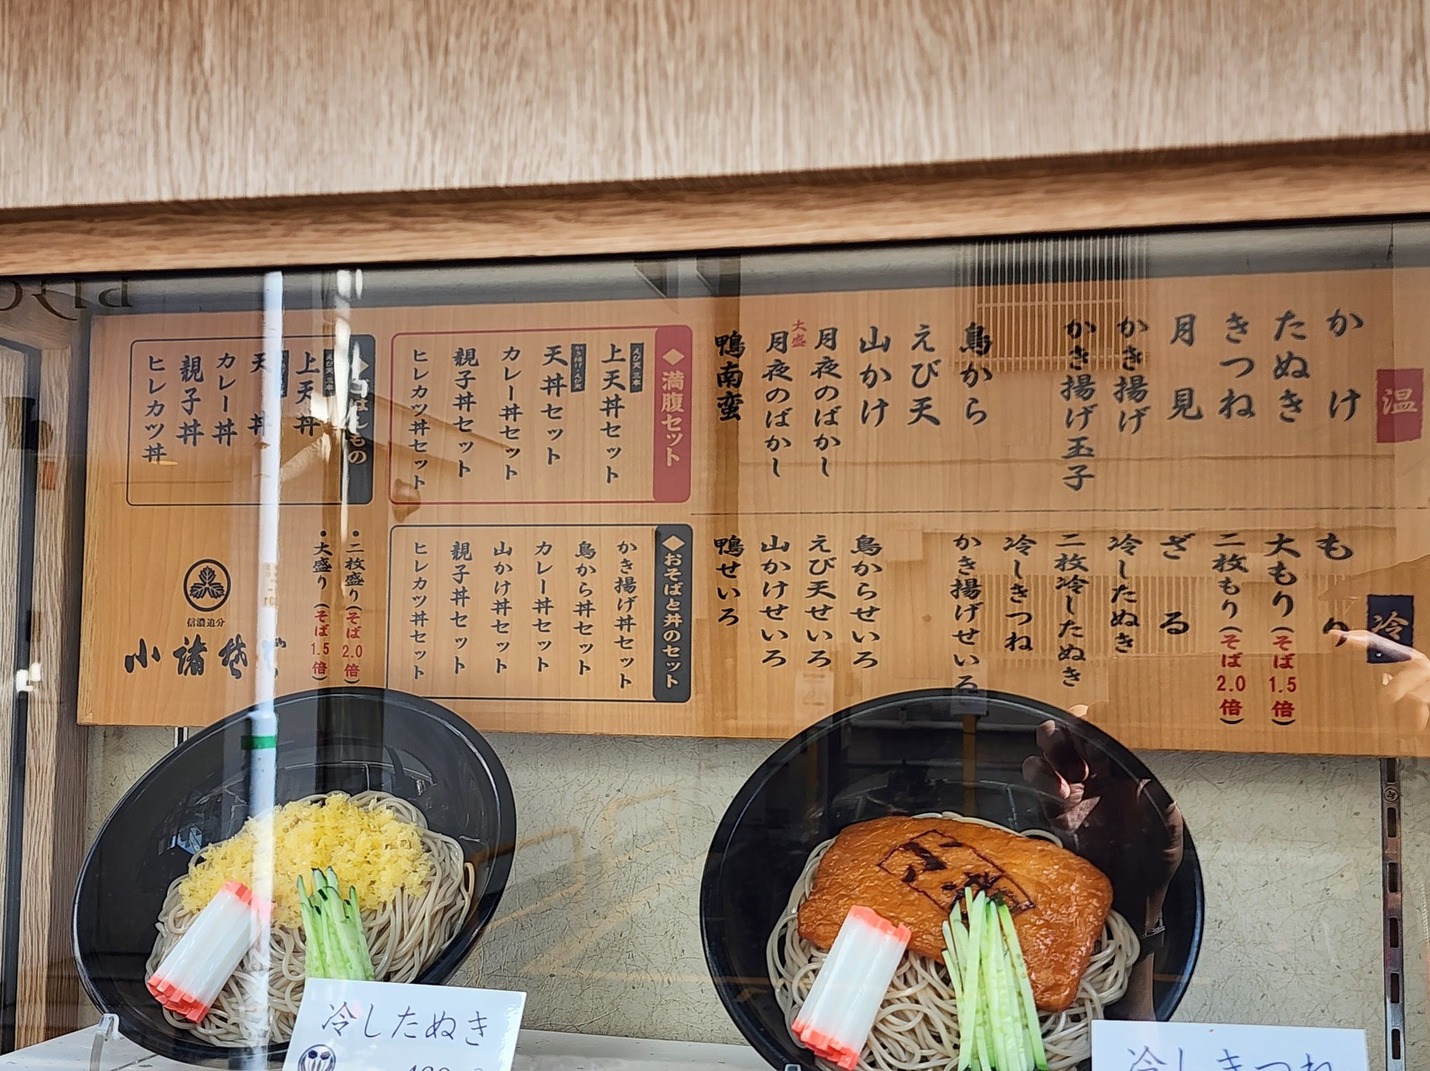 温
かけ
たぬき
きつね
月見
かき揚げ
かき揚げ玉子
鳥から
えび天
山かけ
月夜のばかし
大盛
月夜のばかし
鴨南蛮
冷
もり
大もり(そば1.5倍)
二枚もり(そば2.0倍)
ざる
冷したぬき
二枚冷したぬき
冷しきつね
かき揚げせいろ
鳥からせいろ
えび天せいろ
山かけせいろ
鴨せいろ
◆満腹セット
えび天三本
上天丼セット
天丼セット
カレー丼セット
親子丼セット
ヒレカツ丼セット
◆おそばと丼のセット
かき揚げ丼セット
鳥から丼セット
カレー丼セット
山かけ丼セット
親子丼セット
ヒレカツ丼セット
上天丼
天丼
カレー丼
親子丼
ヒレカツ丼
・二枚盛り(そば2.0倍)
・大盛り(そば1.5倍)
信濃追分
小諸そば
冷したぬき
冷しきつね